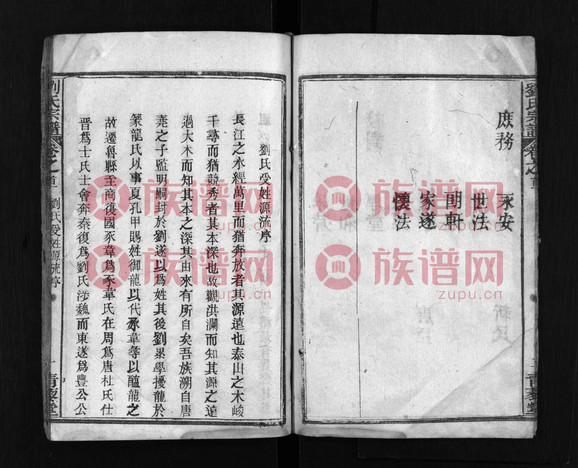 劉氏宗譜
庶務
永安
世法
朗軒
家遂
懷法
青藜堂
劉氏受姓源流序
長江之水經萬里而猶奔放者其源遠也泰山之木峻
千尋而猶競秀者其本深也故觀洪瀾而知其源之遠
過大木而知其本之深其由來有所自矣吾族溯自唐
堯之子監明嗣封於劉遂以為姓其後劉累學擾龍於
豢龍氏以事夏孔甲賜姓御龍以代豕韋等以醢龍之
故遷魯縣至商復國豕韋為豕韋氏在周為唐杜氏仕
晉為士氏士會奔秦復為劉氏涉魏而東遂為豐公公
劉氏宗譜
卷之首
劉氏受姓源流序
一
青藜堂
族谱网
zupu.cn
族谱网
zupu.cn